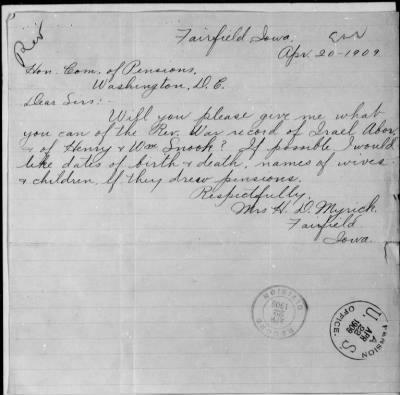 Rev
Fairfield, Iowa.
Apr. 20-1909.
Hon. Com. of Pensions,
Washington, D.C.
Dear Sirs:-
Will you please give me what
you can of the Rev. War record of Israel Abor
& of Henry & Wm Snook? If possible, I would
like dates of birth & death, names of wives
& children, If they drew pensions.
Respectfully,
Mrs H. D. Myrick.
Fairfield
Iowa.
RECORD DIVISION
APR
1909
U. S. PENSION OFFICE.
APR
22
1909